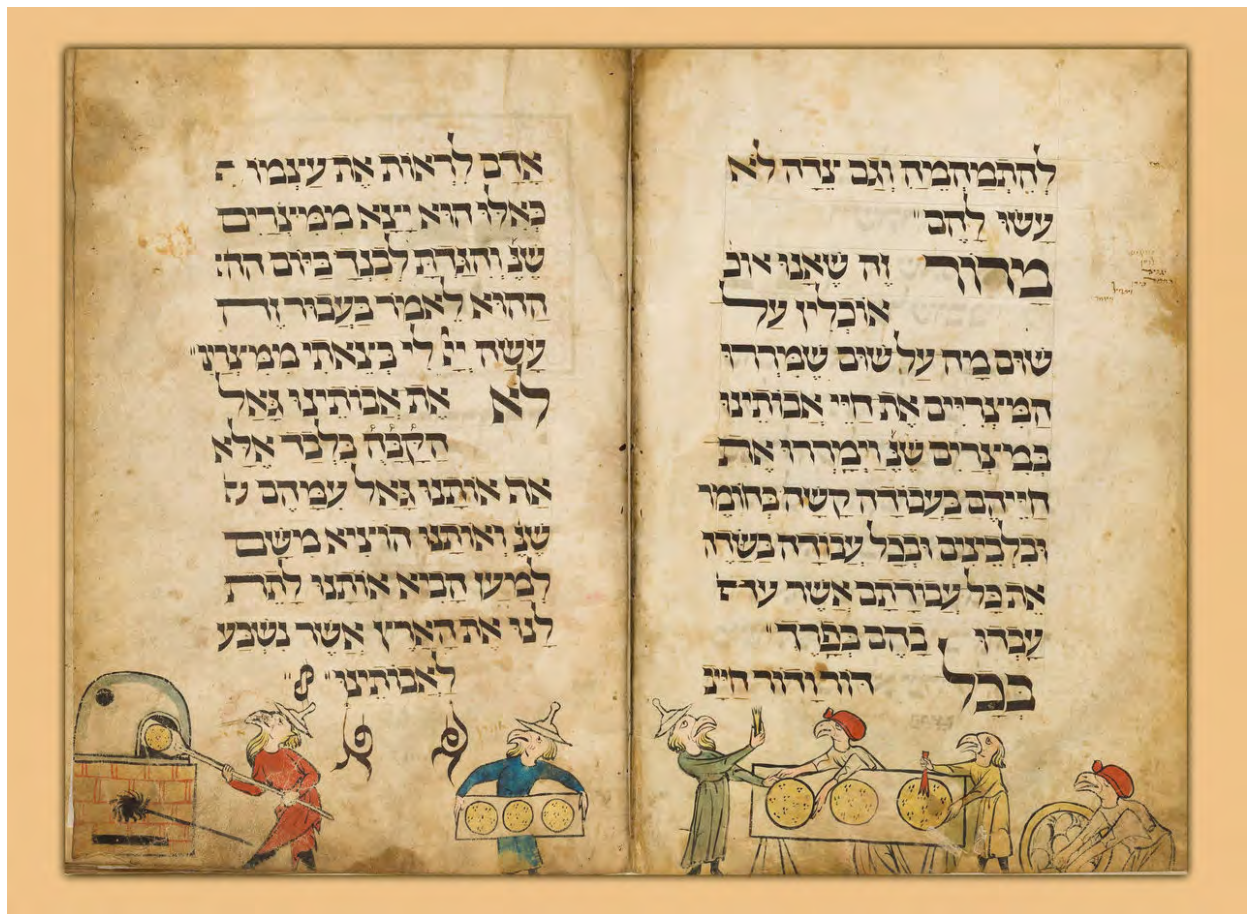 להתמהמה וגם צדה לא
עשו להם״
מרור זה שאנו אוכ
אוכלין על
שום מה על שום שמררו
המצריים את חיי אבותינו
במצרים שנ וימררו את
חייהם בעבודה קשה בחומר
ובלבינים ובכל עבודה בשדה
את כל עבודתם אשר
עבדו בהם בפרך״
בכל דור ודור חייב
אדם לראות את עצמו
כאלו הוא יצא ממצרים
שנ והגדת לבנך ביום הה
ההוא לאמור בעבור זה
עשה ייי לי בצאתי ממצרי״
לא את אבותינו גאל
הקבה בלבד אלא
אף אותנו גאל עמהם
שנ ואותנו הוציא משם
למען הביא אותנו לתת
לנו את הארץ אשר נשבע
לאבותינו״